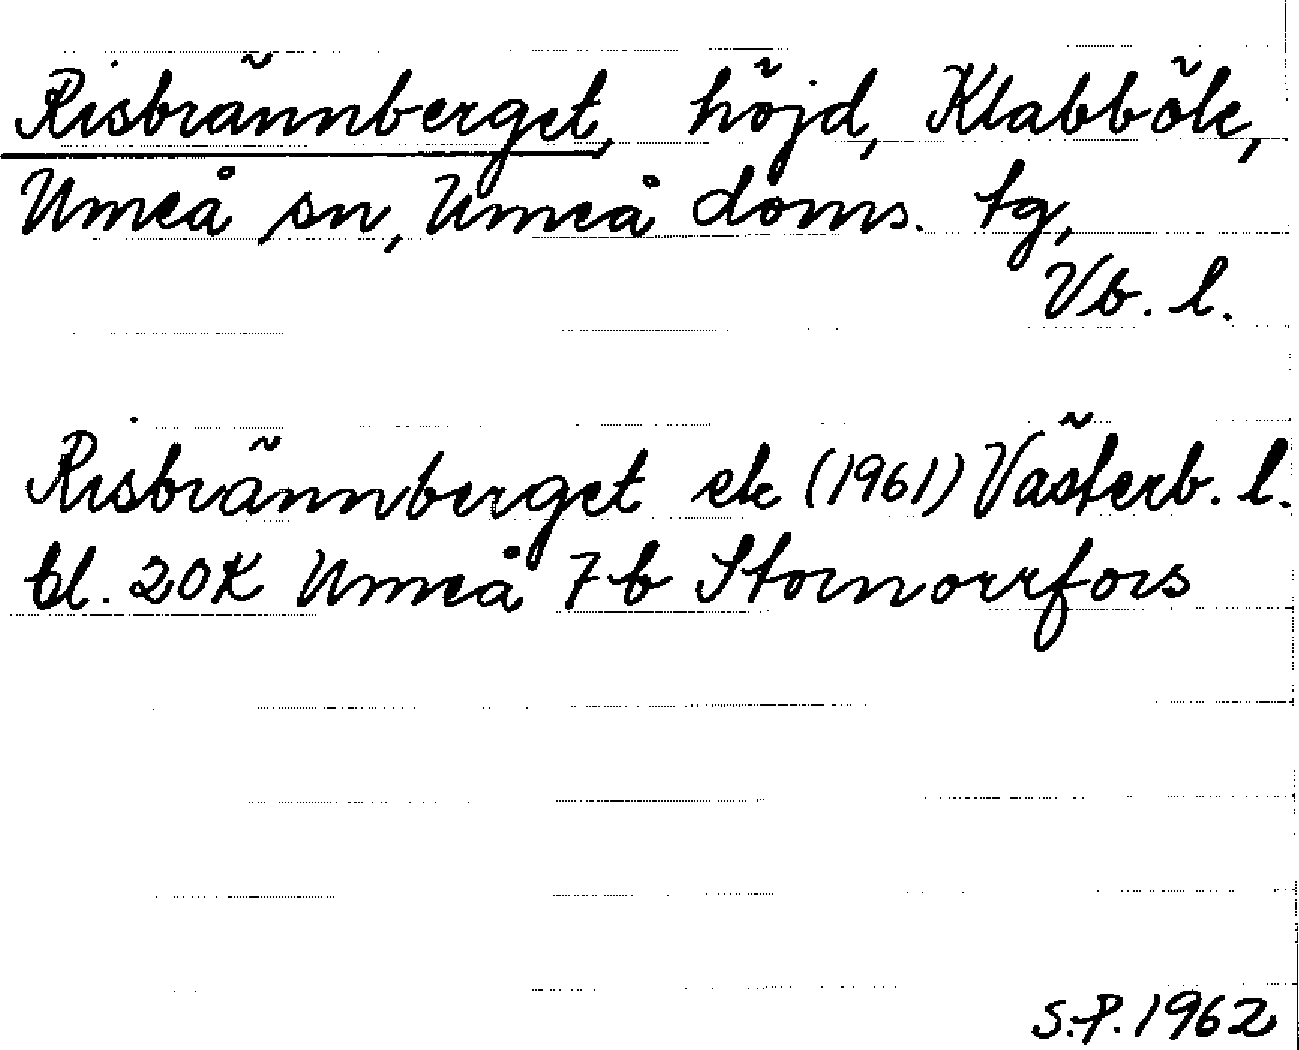 Risbrännberget, höjd, Klabböle,
Umeå sn, Umeå doms. tg,
Vb. l.
Risbrännberget ek (1961) Västerb. l.
bl. 20K Umeå 7b Stornorrfors
S.P. 1962